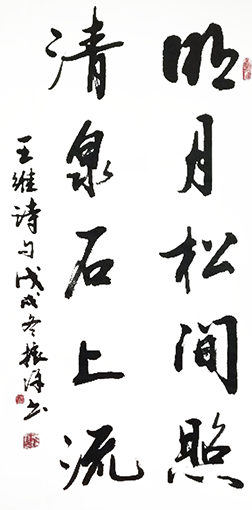 明月松间照
清泉石上流
王维诗句戊戌冬振泽书